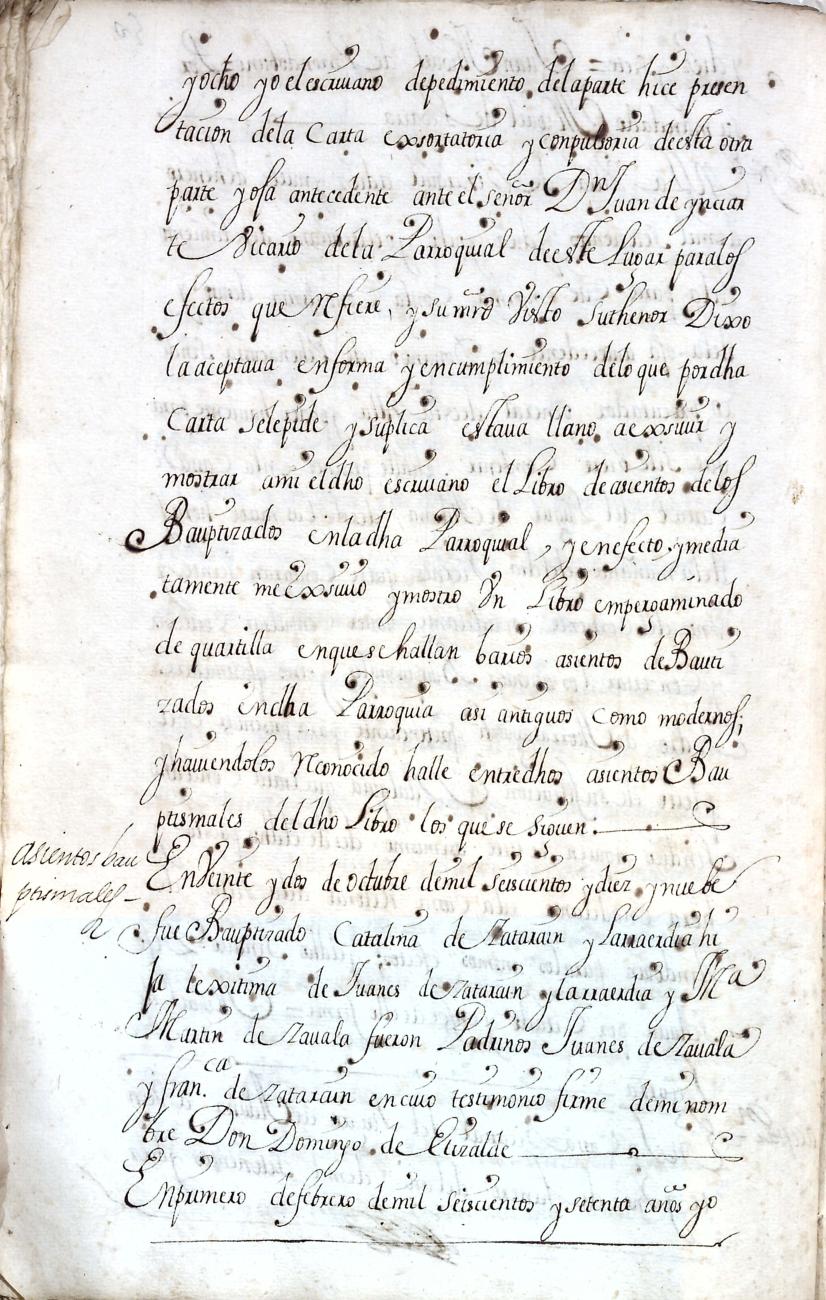 yocho yo el escriuano depedimiento delaparte hice presen
tacion dela Carta exsortatoria y conpulsoria deesta otra
parte yofa antecedente ante el señor Dn Juan de ynciar
te Vicario dela Parroquial deeste Lugar paralos
efectos que Refiere, y su mrd Visto suthenor Dixo
la aceptaua enforma y encumplimiento delo que pordha
Carta selepide y suplica estaua llano aexsiuir y
mostrar ami eldho escriuano el Libro de asientos delos
Bauptizados enladha Parroquial, y enefecto ymedia
tamente me Exsiuio ymostro Vn Libro empergaminado
de quartilla enquesehallan barios asientos deBauti
zados Endha Parroquia asi antiguos como modernos;
yhauiendolos Reconocido halle entredhos asientos Bau
ptismales deldho Libro los que se siguen.
asientos bau
ptismales
EnVeinte ydos de octubre demil seiscientos ydiez ynuebe
fue Bauptizado Catalina de Zatarain y Larraerdia hi
ja lexitima de Juanes de Zatarain y larraerdia y Ma
Martin de Zauala fueron Padrinos Juanes de Zauala
y fran.ca de Zatarain encuio testimonio firme demi nom
bre Don Domingo de Elizalde
Enprimero defebrero demil seiscientos ysetenta años yo